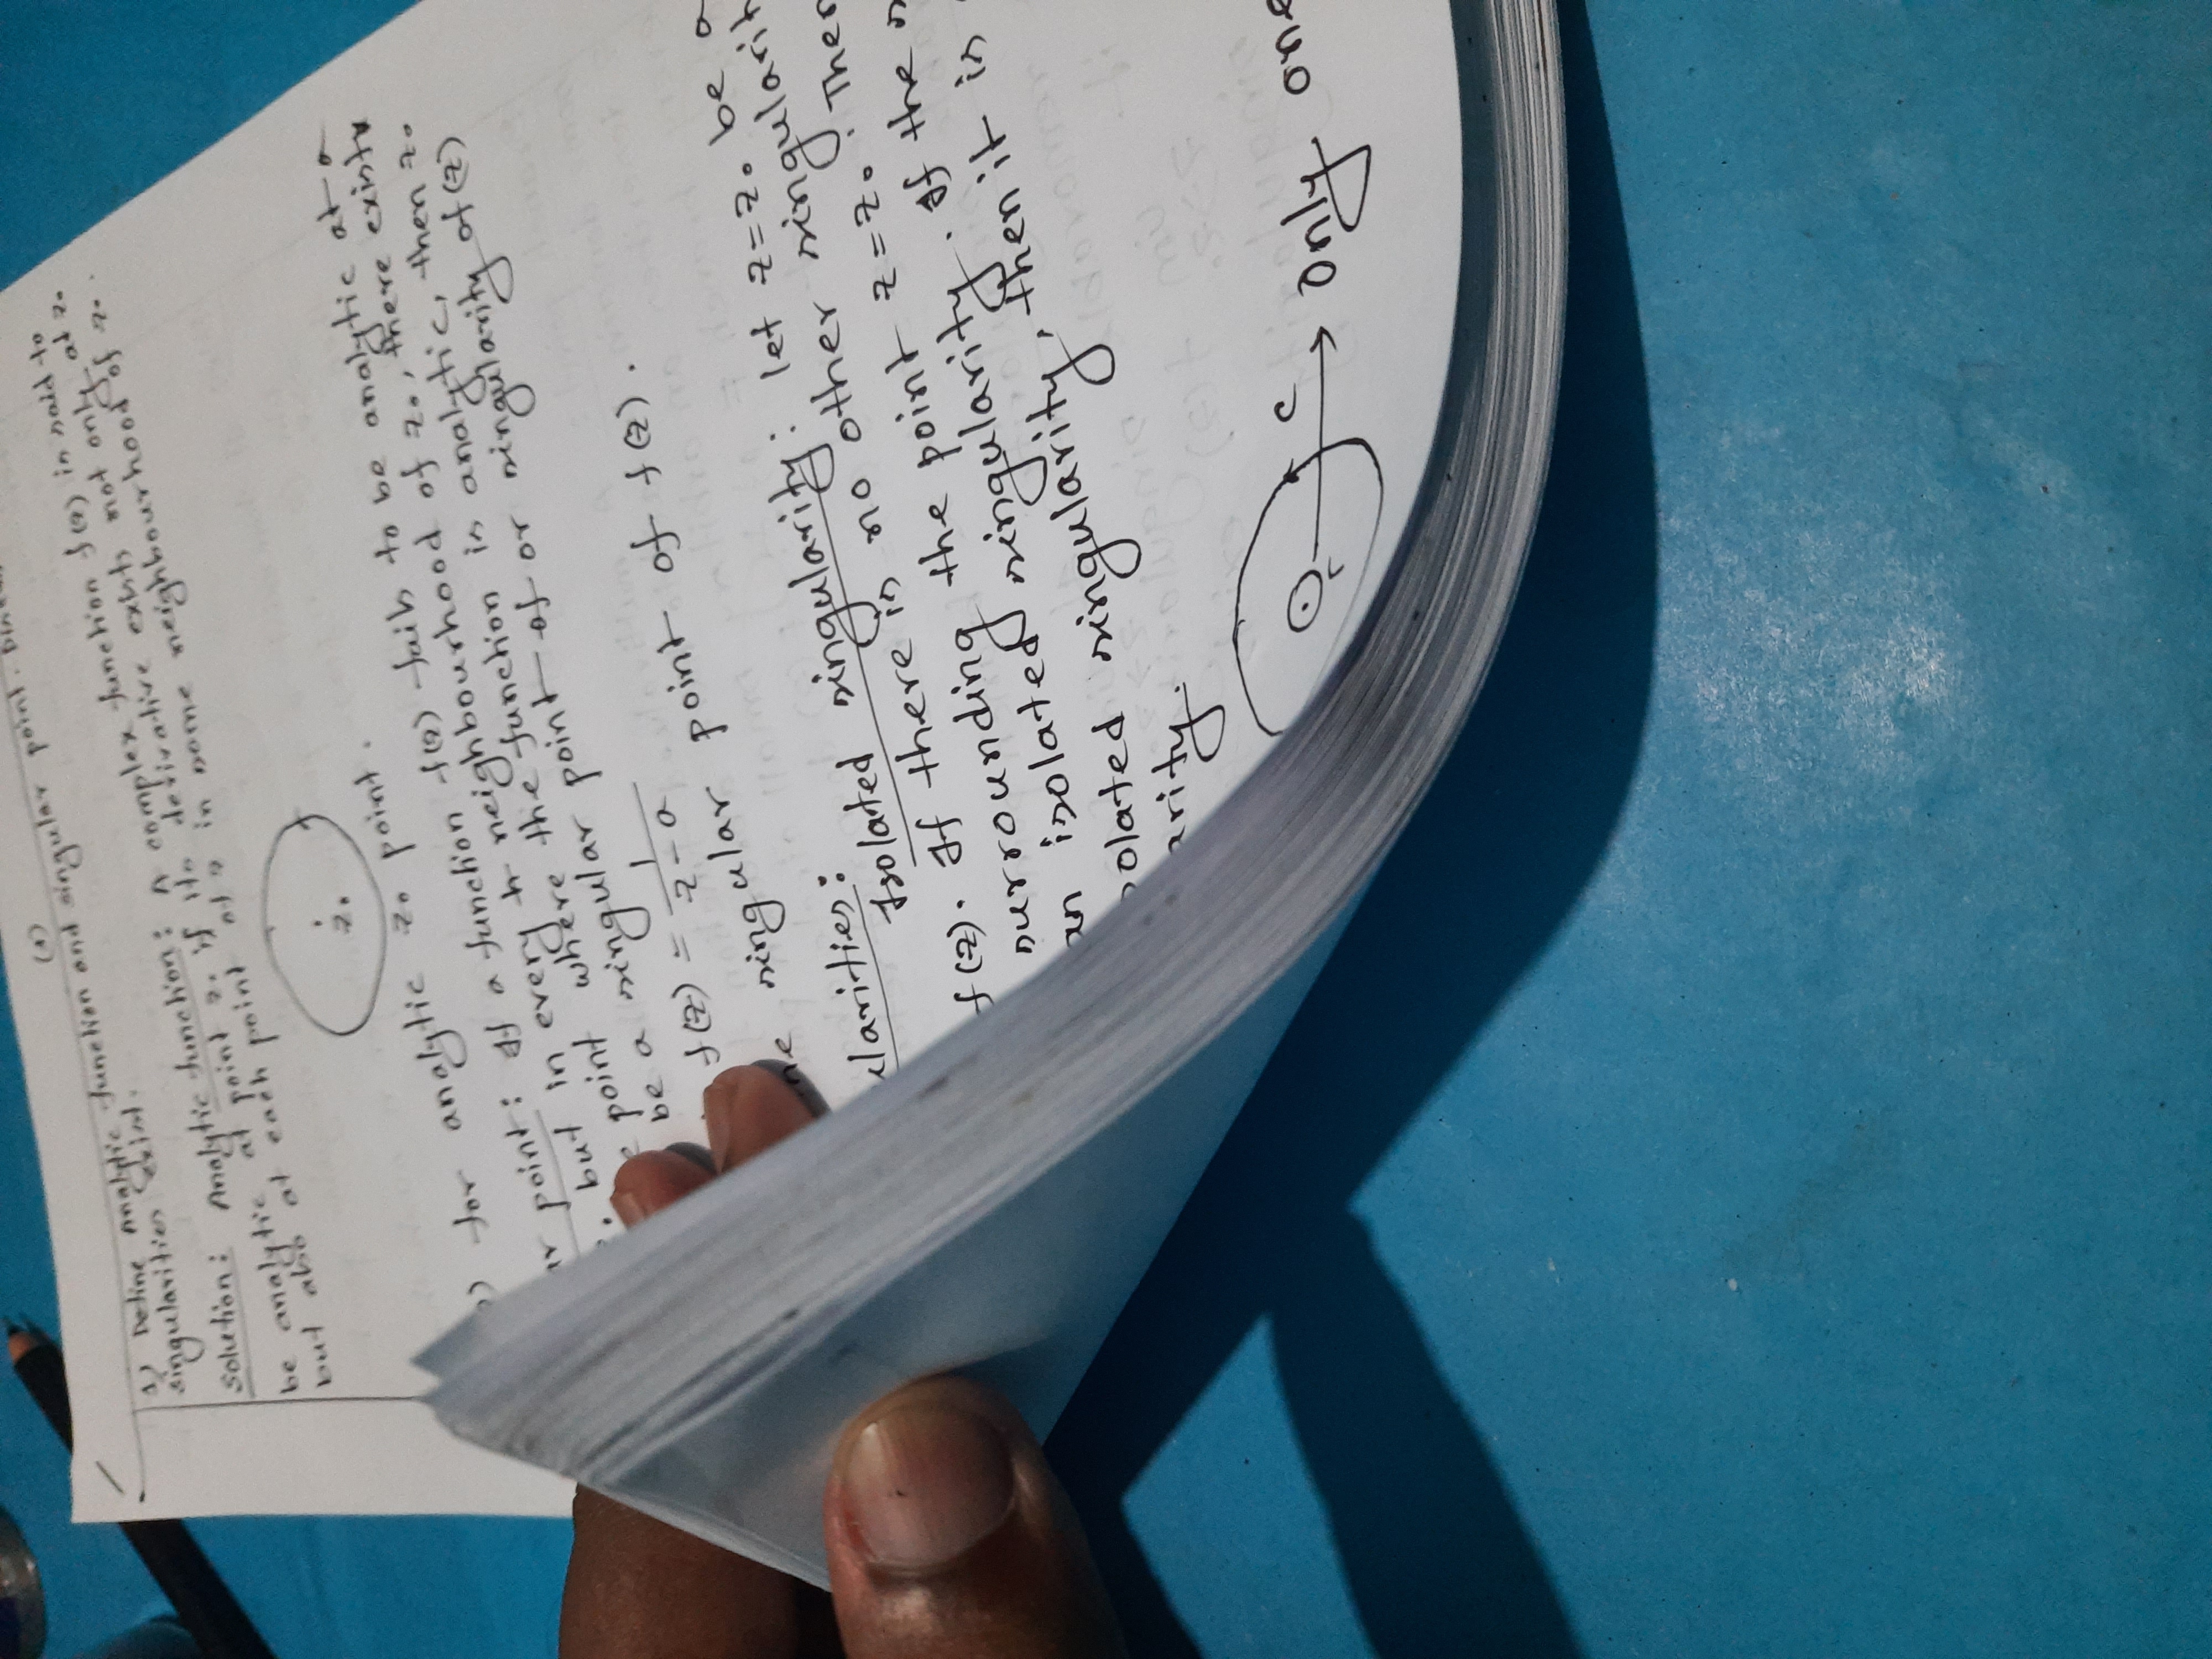 (1)
1) Define analytic function and singular point.
singularities exist.
Solution: Analytic function: A complex function f(z) is said to
be analytic at point z₀ if its derivative exist not only at z₀
but also at each point of z in some neighbourhood of z₀.
z₀
for analytic z₀ point.
point: If a function f(z) fails to be analytic at a
but in every neighbourhood of z₀, there exists
point where the function is analytic, then z₀
be a singular point of or singularity of f(z)
f(z) = 1/(z-a)
singular point of f(z).
Isolated singularity: let z=z₀ be a
f(z). If there is no other singularity
surrounding the point z=z₀. Then
an isolated singularity. If the
singularity, then it is
C → only one